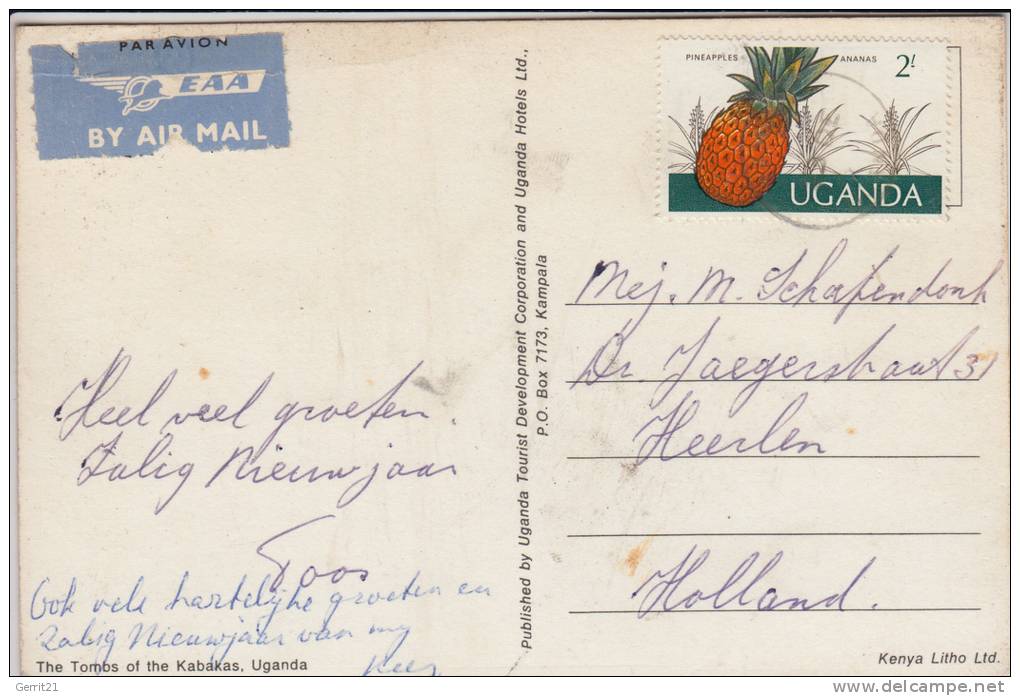 PAR AVION
EAA
BY AIR MAIL
PINEAPPLES ANANAS 2/
UGANDA
Heel veel groeten.
Zalig Nieuwjaar
Toos
Ook vele hartelijke groeten en
zalig Nieuwjaar van my
Kees
The Tombs of the Kabakas, Uganda
Published by Uganda Tourist Development Corporation and Uganda Hotels Ltd.,
P.O. Box 7173, Kampala
Mej. M. Schafendonk
Dr. Jaegerstraat 31
Heerlen
Holland.
Kenya Litho Ltd.
Gerrit21
www.delcampe.net